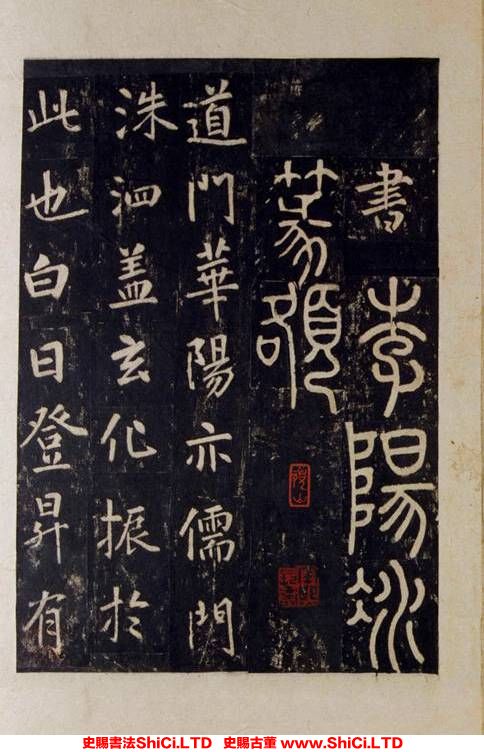 書李陽冰
篆額
道門華陽亦儒門
洙泗盖玄化振於
此也白日登昇有
史賜書法ShiCi.LTD 史賜古董 www.ShiCi.LTD